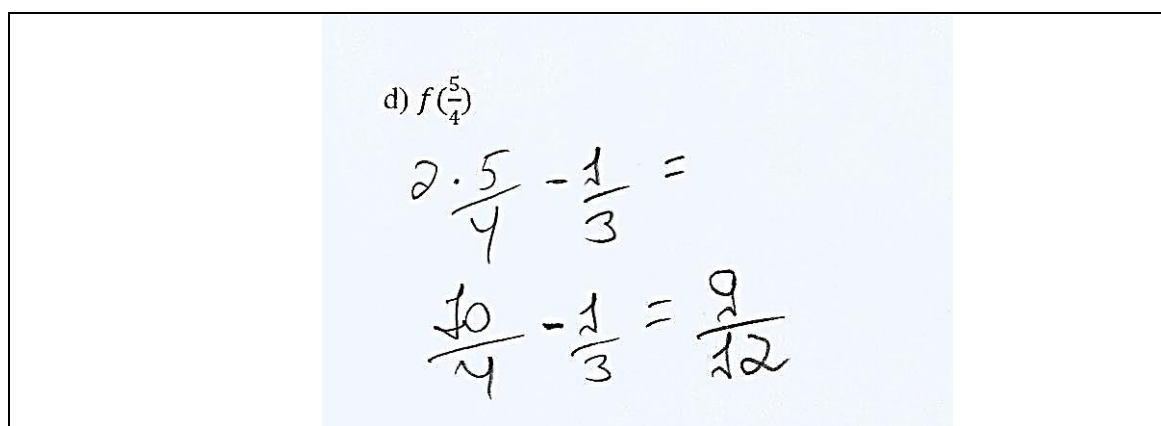 d) f(5/4)
2 · 5/4 - 1/3 =
10/4 - 1/3 = 9/12